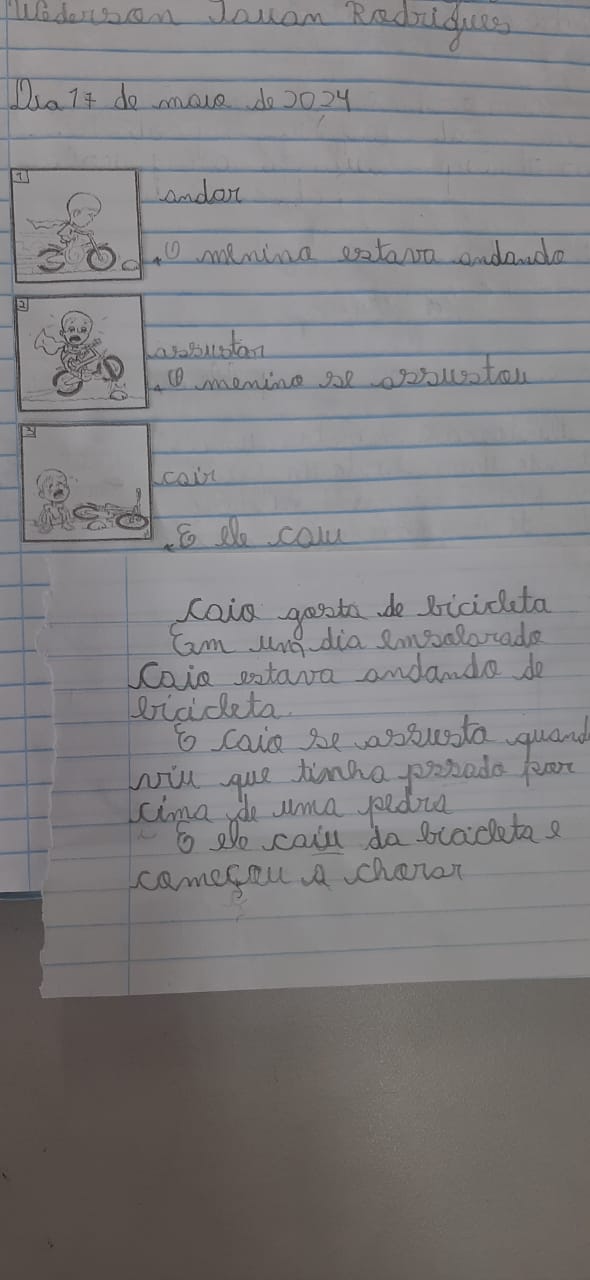 Wederson Tauan Rodrigues
Dia 17 de maio de 2024
1
andar
.O menino estava andando
2
assustar
.O menino se assustou
3
cair
.E ele caiu
Caio gosta de bicicleta
Em um dia ensolarado
Caio estava andando de
bicicleta.
E caio se assusta quand
viu que tinha passado por
cima de uma pedra
E ele caiu da bicicleta e
começou a chorar